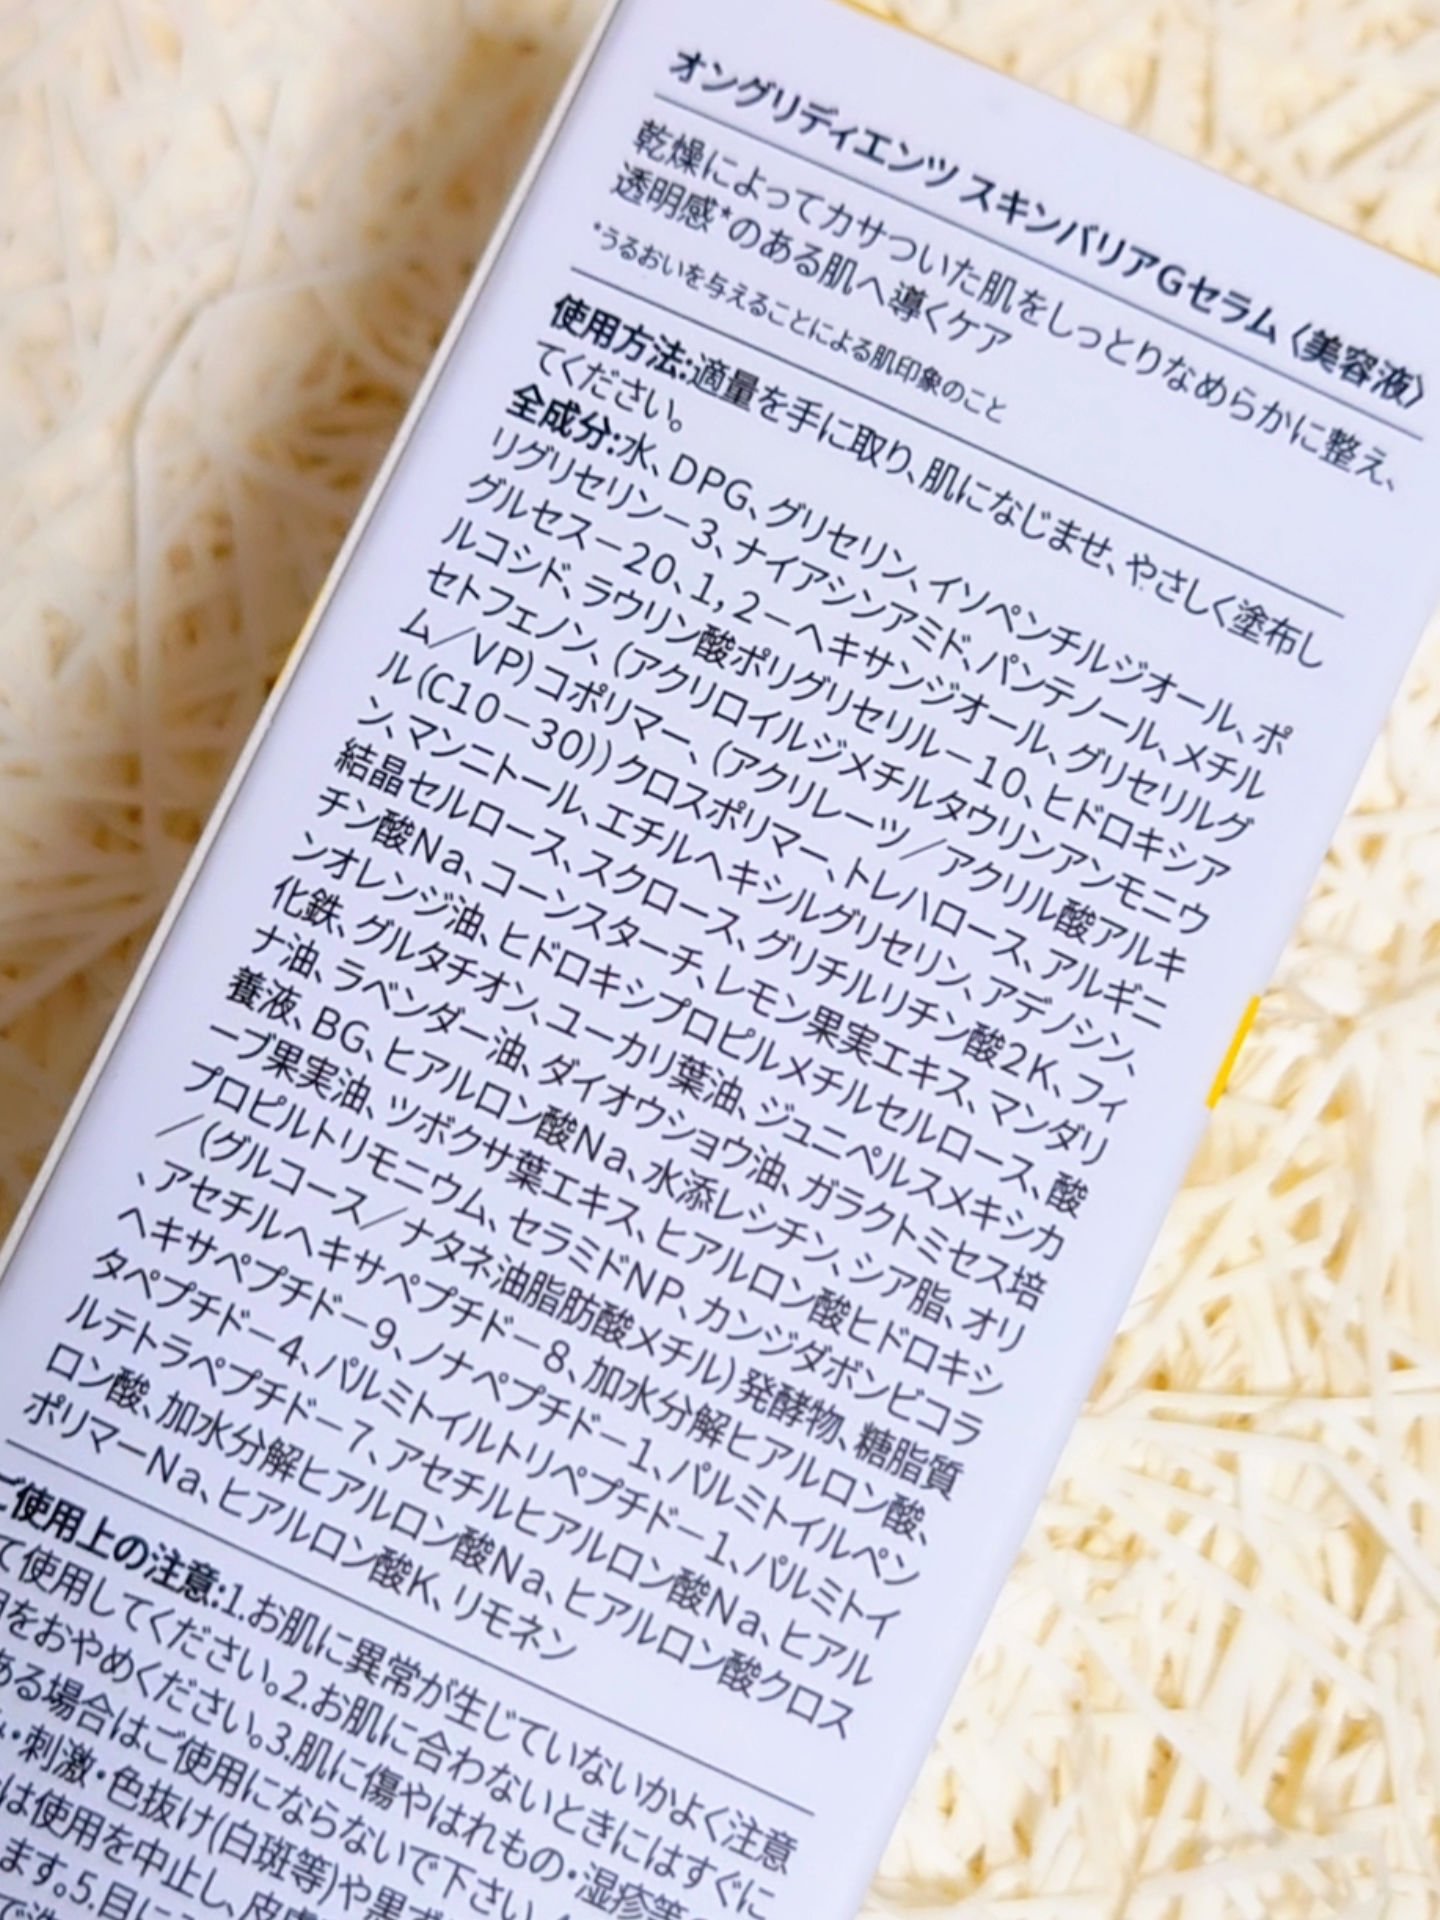 オングリディエンツ スキンバリアGセラム〈美容液〉
乾燥によってカサついた肌をしっとりなめらかに整え、
透明感*のある肌へ導くケア
*うるおいを与えることによる肌印象のこと
使用方法:適量を手に取り、肌になじませ、やさしく塗布し
てください。
全成分:水、DPG、グリセリン、イソペンチルジオール、ポ
リグリセリン－3、ナイアシンアミド、パンテノール、メチル
グルセス－20、1，2－ヘキサンジオール、グリセリルグ
ルコシド、ラウリン酸ポリグリセリル－10、ヒドロキシア
セトフェノン、(アクリロイルジメチルタウリンアンモニウ
ム／VP)コポリマー、(アクリレーツ／アクリル酸アルキ
ル(C10－30))クロスポリマー、トレハロース、アルギニ
ン、マンニトール、エチルヘキシルグリセリン、アデノシン、
結晶セルロース、スクロース、グリチルリチン酸2K、フィ
チン酸Na、コーンスターチ、レモン果実エキス、マンダリ
ンオレンジ油、ヒドロキシプロピルメチルセルロース、酸
化鉄、グルタチオン、ユーカリ葉油、ジュニペルスメキシカ
ナ油、ラベンダー油、ダイオウショウ油、ガラクトミセス培
養液、BG、ヒアルロン酸Na、水添レシチン、シア脂、オリ
ーブ果実油、ツボクサ葉エキス、ヒアルロン酸ヒドロキシ
プロピルトリモニウム、セラミドNP、カンジダボンビコラ
／(グルコース／ナタネ油脂肪酸メチル)発酵物、糖脂質
、アセチルヘキサペプチド－8、加水分解ヒアルロン酸、
ヘキサペプチド－9、ノナペプチド－1、パルミトイルペン
タペプチド－4、パルミトイルトリペプチド－1、パルミトイ
ルテトラペプチド－7、アセチルヒアルロン酸Na、ヒアル
ロン酸、加水分解ヒアルロン酸Na、ヒアルロン酸クロス
ポリマーNa、ヒアルロン酸K、リモネン
ご使用上の注意:1.お肌に異常が生じていないかよく注意
て使用してください。2.お肌に合わないときにはすぐに
をおやめください。3.肌に傷やはれもの・湿疹等
ある場合はご使用にならないで下さい
・刺激・色抜け(白斑等)や黒ず
は使用を中止し、皮膚
ます。5.目に